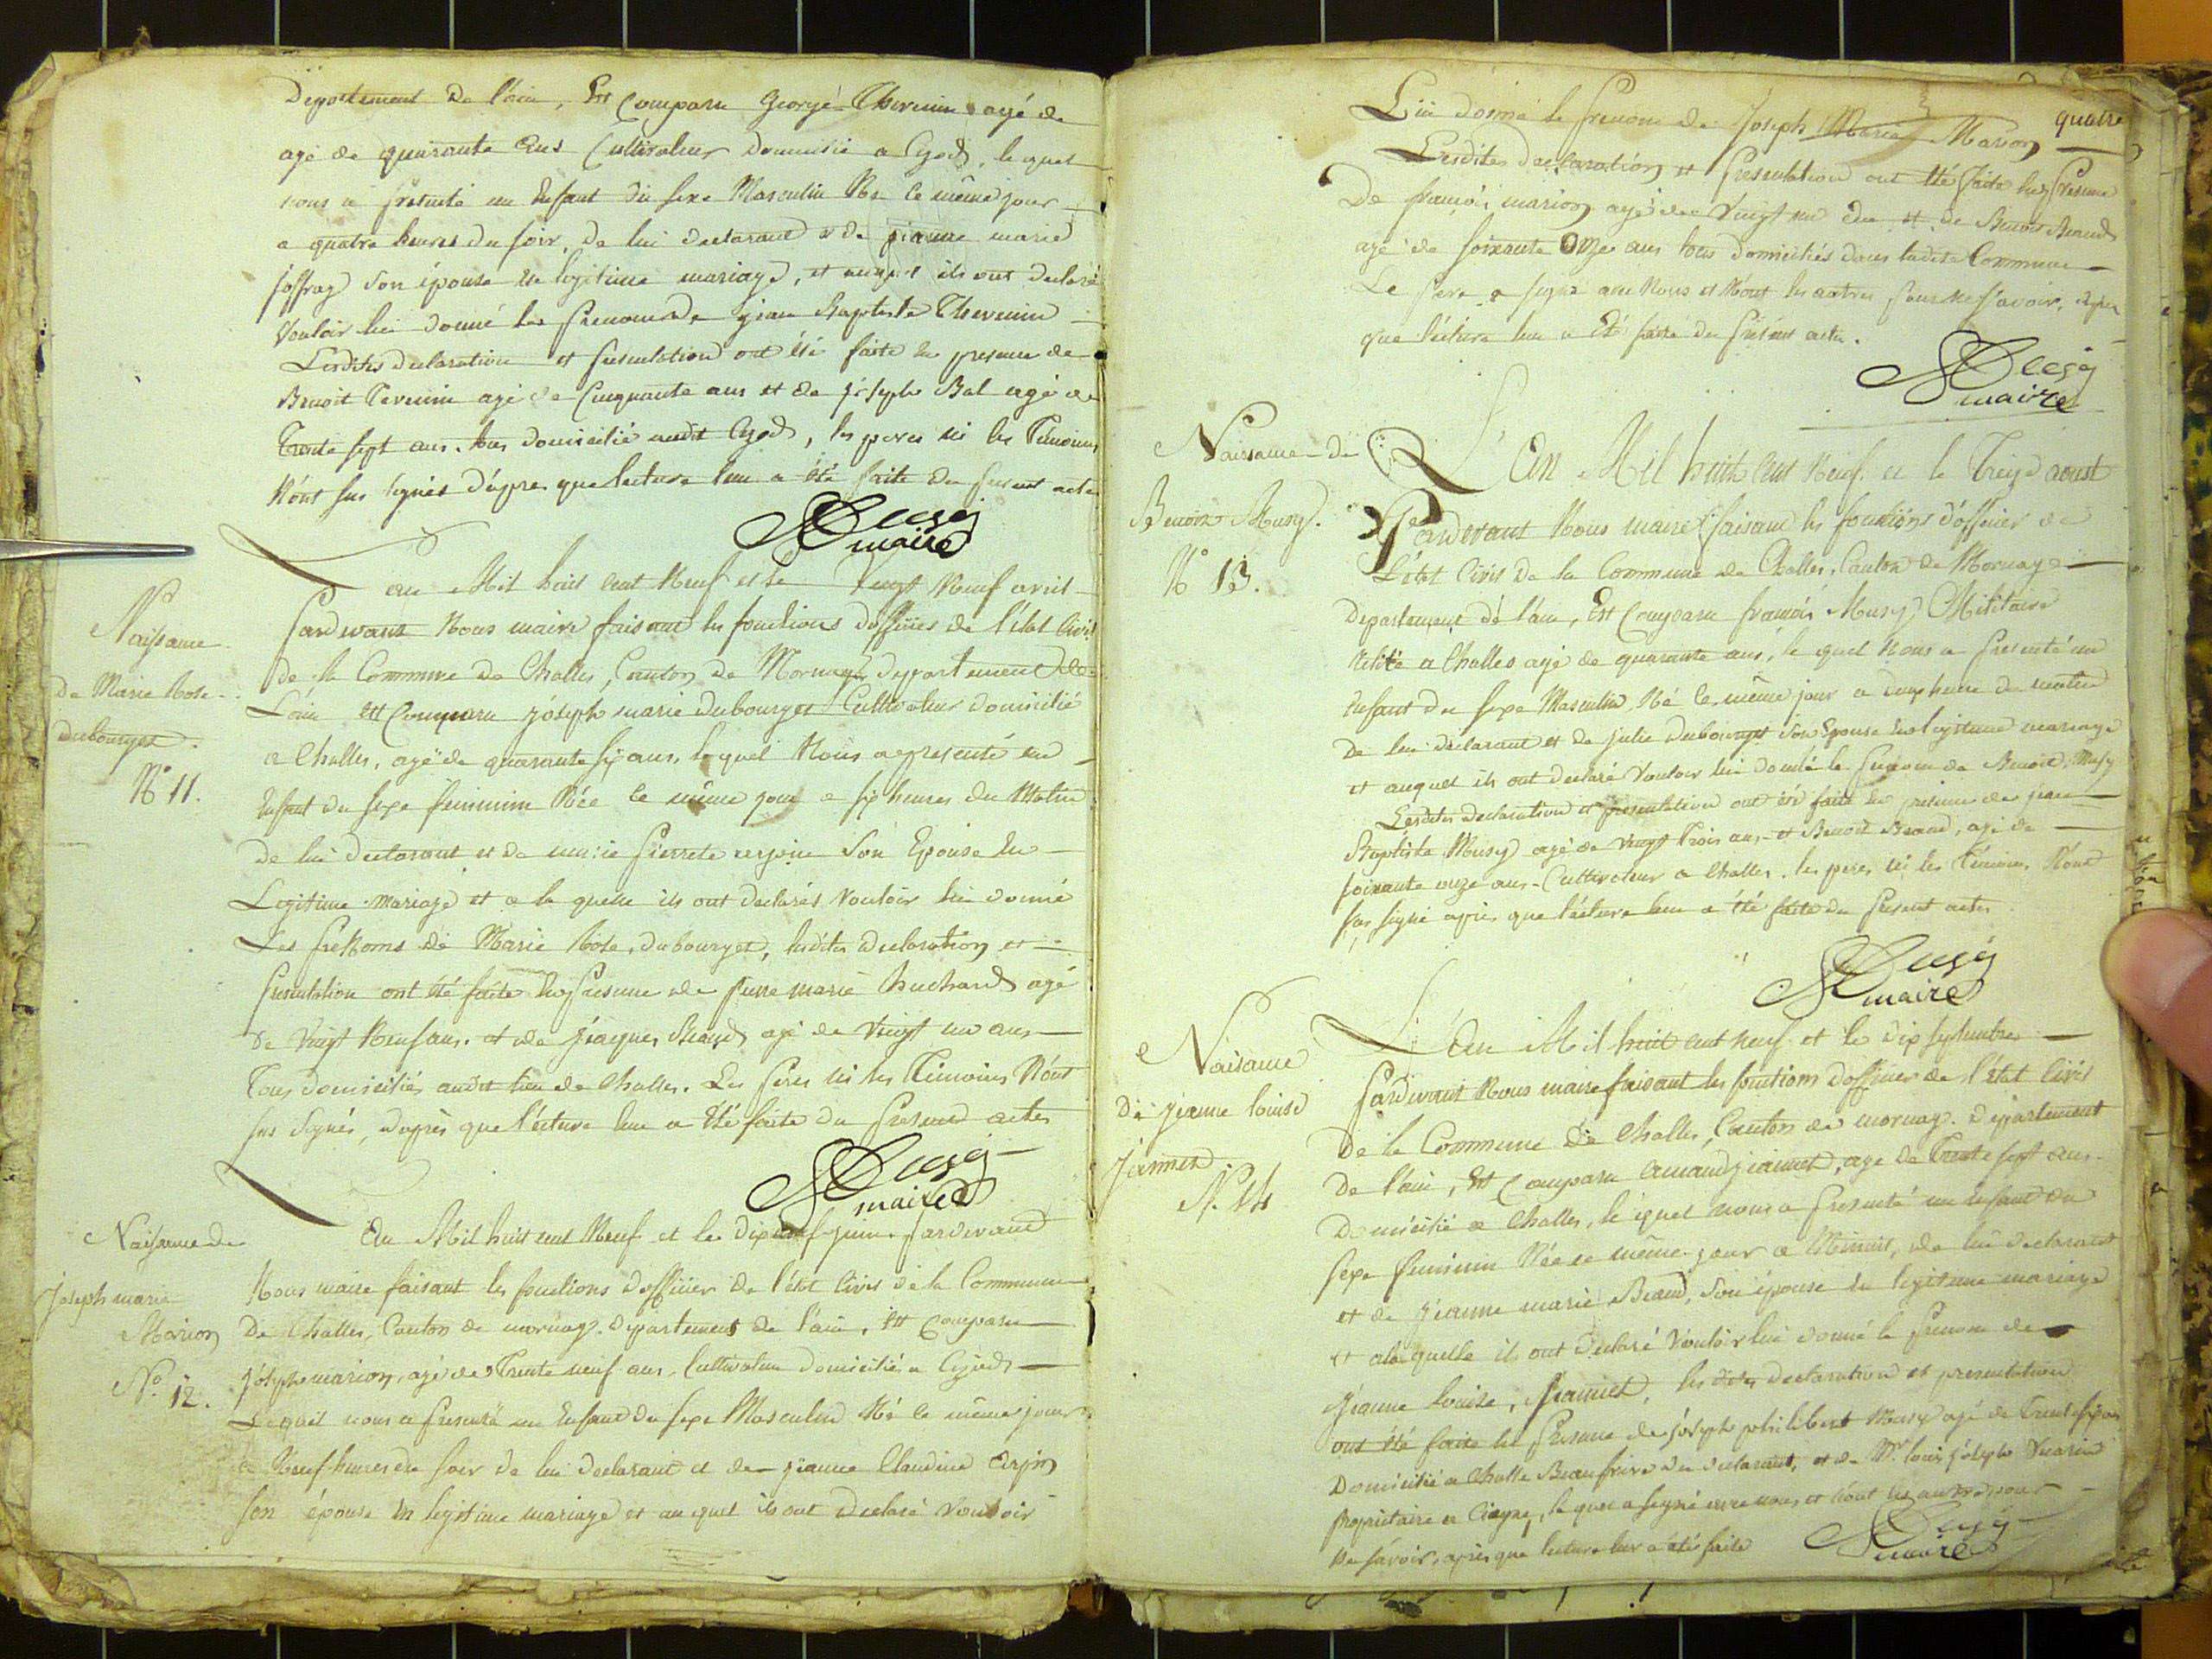 Departement de l'ain, Est Comparu George Thevenin agé de
agé de quarante ans Cultivateur domicilié a Ciyod, le quel
nous a presenté un Enfant du sexe Masculin Né le même jour
a quatre heures du soir, de lui declarant & de jeanne marie
joffray son épouse en legitime mariage, et auquel ils ont declaré
Vouloir lui donné les prenoms de jean Baptiste Thevenin
Lesdites declaration et presentation ont été faite en presence de
Benoit Tevenin agé de Cinquante ans et de joseph Bal agé de
Trente sept ans. tous domicilié audit Ciyod, les peres ni les Témoins
N'ont pas signés d'après que lecture leur a été faite du present acte
maire
Naissance
de Marie Rose
dubourget.
N° 11.
L'an Mil huit cent Neuf et le Vingt Neuf avril
Pardevant Nous maire faisant les fonctions d'officier de l'état Civil
de la Commune de Challes, Canton de Mornay, departement de
L'ain est Comparu joseph marie dubourget Cultivateur domicilié
a Challes, agé de quarante six ans, lequel Nous a presenté un
Enfant du sexe feminin Née le même jour a six heures du Matin
de lui declarant et de marie pierrete son Epouse en
Legitime Mariage et a la quelle ils ont declarés Vouloir lui donné
Les preNoms de Marie Rose, dubourget, lesdites declaration et
presentation ont été faite en presence de pierre marie huchard agé
de Vingt Neuf ans. et de jacques Beaud agé de Vingt un ans
Tous domiciliés audit lieu de Challes. Les peres ni les Témoins N'ont
pas signés, d'après que l'écture leur a été faite du present actes
maire
Naissance de
joseph marie
Marion
N° 12.
L'an Mil huit cent Neuf et le dix neuf juin pardevant
Nous maire faisant les fonctions d'officier de l'état Civil de la Commune
De Challes, Canton de mornay. departement de l'ain, est Comparu
joseph marion, agé de Trente neuf ans, Cultivateur domicilié a Ciyod
Lequel nous a presenté un Enfant du sexe Masculin Né le même jour
a Neuf heures du soir de lui declarant et de jeanne Claudine
son épouse en legitime mariage et au quel ils ont declaré Vouloir
quatre
Lui donné le prenom de Joseph Marie Marion
Lesdites declaration et presentation ont été faite en presence
De françois marion agé de Vingt un ans et de Benoit Beaud
agé de soixante Onze ans tous domiciliés dans ladite Commune
Le pere a signé avec Nous et N'ont les autres pour ne savoir, après
que l'écture leur a été faite du present acte.
maire
Naissance de
Benoit Musy.
N° 13.
L'An Mil huit cent Neuf et le Treize aoust
Pardevant Nous maire faisant les fonctions d'officier de
L'état Civil de la Commune de Challes, Canton de Mornay
departement de l'ain, Est Comparu françois Musy Militaire
retité a Challes agé de quarante ans, le quel Nous a presenté un
Enfant du sexe Masculin Né le même jour a heure du matin
de lui declarant et de julie dubourget son Epouse en legitime mariage
et auquel ils ont declaré Vouloir lui donné le prenom de Benoit, Musy
Lesdites declaration et presentation ont été faite en presence de jean
Baptiste Musy agé de Vingt Trois ans et Benoit Beaud, agé de
soixante onze ans Cultivateur a Challes. les peres ni les Témoins N'ont
pas signé après que l'écture leur a été faite du present actes
maire
Naissance
de jeanne louise
jannet
N. 14
L'An Mil huit cent neuf et le dix septembre
Pardevant Nous maire faisant les fonctions d'officier de l'état Civil
De la Commune de Challes, Canton de mornay. departement
de l'ain, Est Comparu jeannet, age de Trente sept ans
Domicilié a Challes, le quel nous a presenté un enfant du
sexe feminin Née le même jour a Minuit, de lui declarant
et de jeanne marie Beaud, son épouse en legitime mariage
et a la quelle ils ont declaré Vouloir lui donné le prenom de
jeanne louise, jeannet, les dites declaration et presentation
ont été faite en presence de joseph philibert Musy agé de Trente six ans
Domicilié a Challe Beaufrere du declarant, et de Mr. louis joseph
proprietaire a, le quel a signé avec nous et N'ont les autres pour
ne savoir, après que lecture leur a été faite
maire